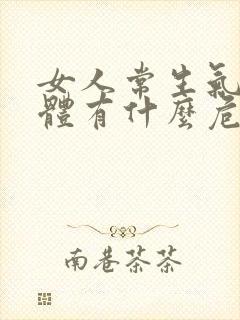 女人常生氣
體有什麼危
南巷茶茶